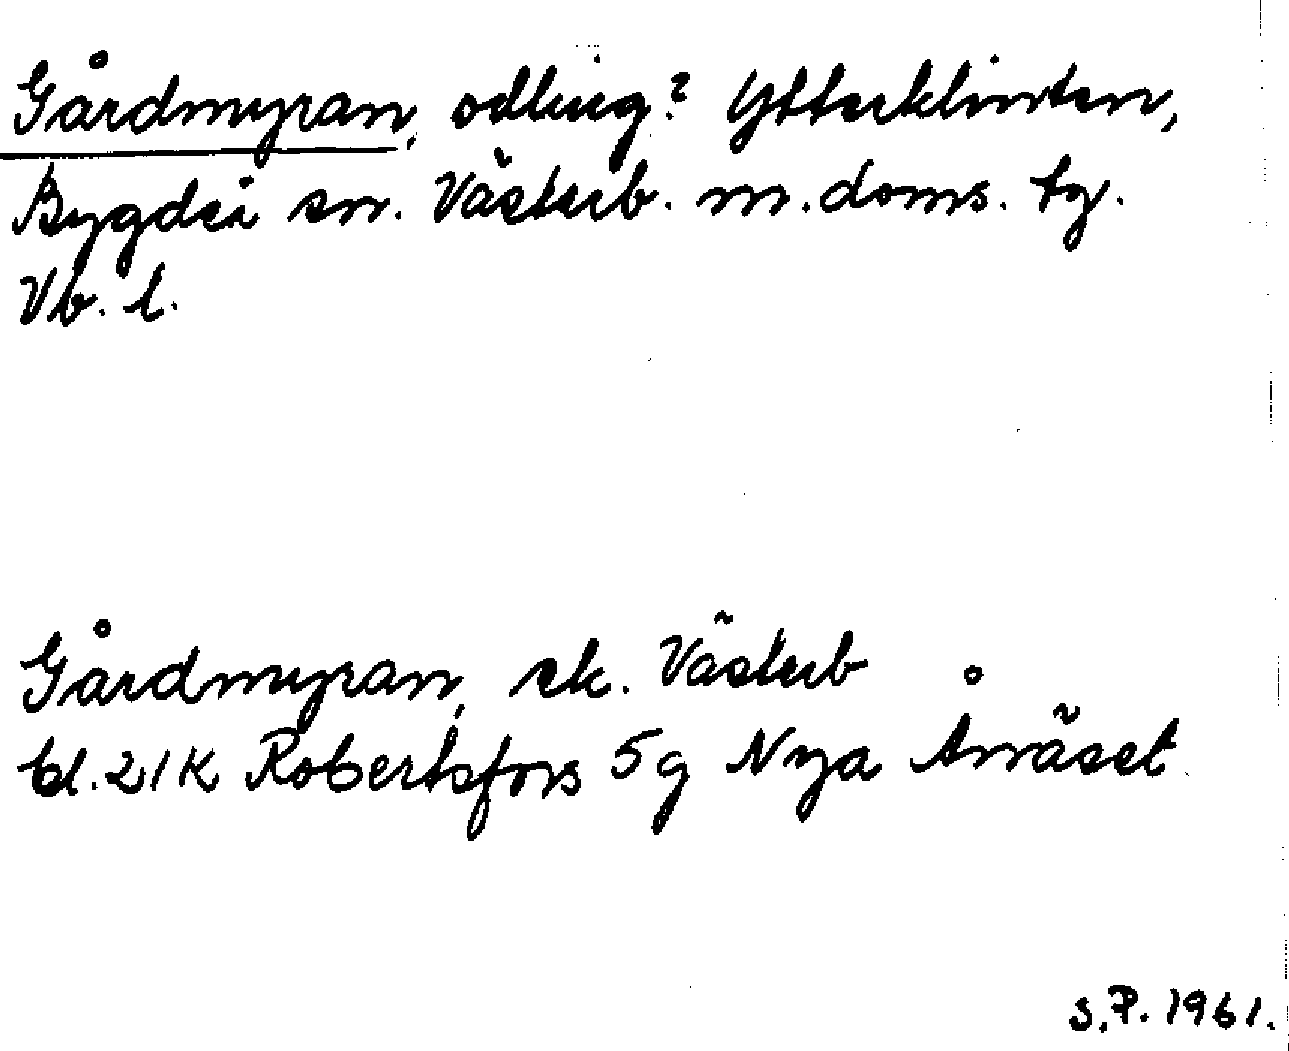 Gårdmyran, odling? Ytterklinten,
Bygdeå sn. Västerb. m. doms. tg.
Vb. l.
Gårdmyran, ek. Västerb
bl. 21K Robertsfors 5g Nya Ånäset
S.P. 1961.